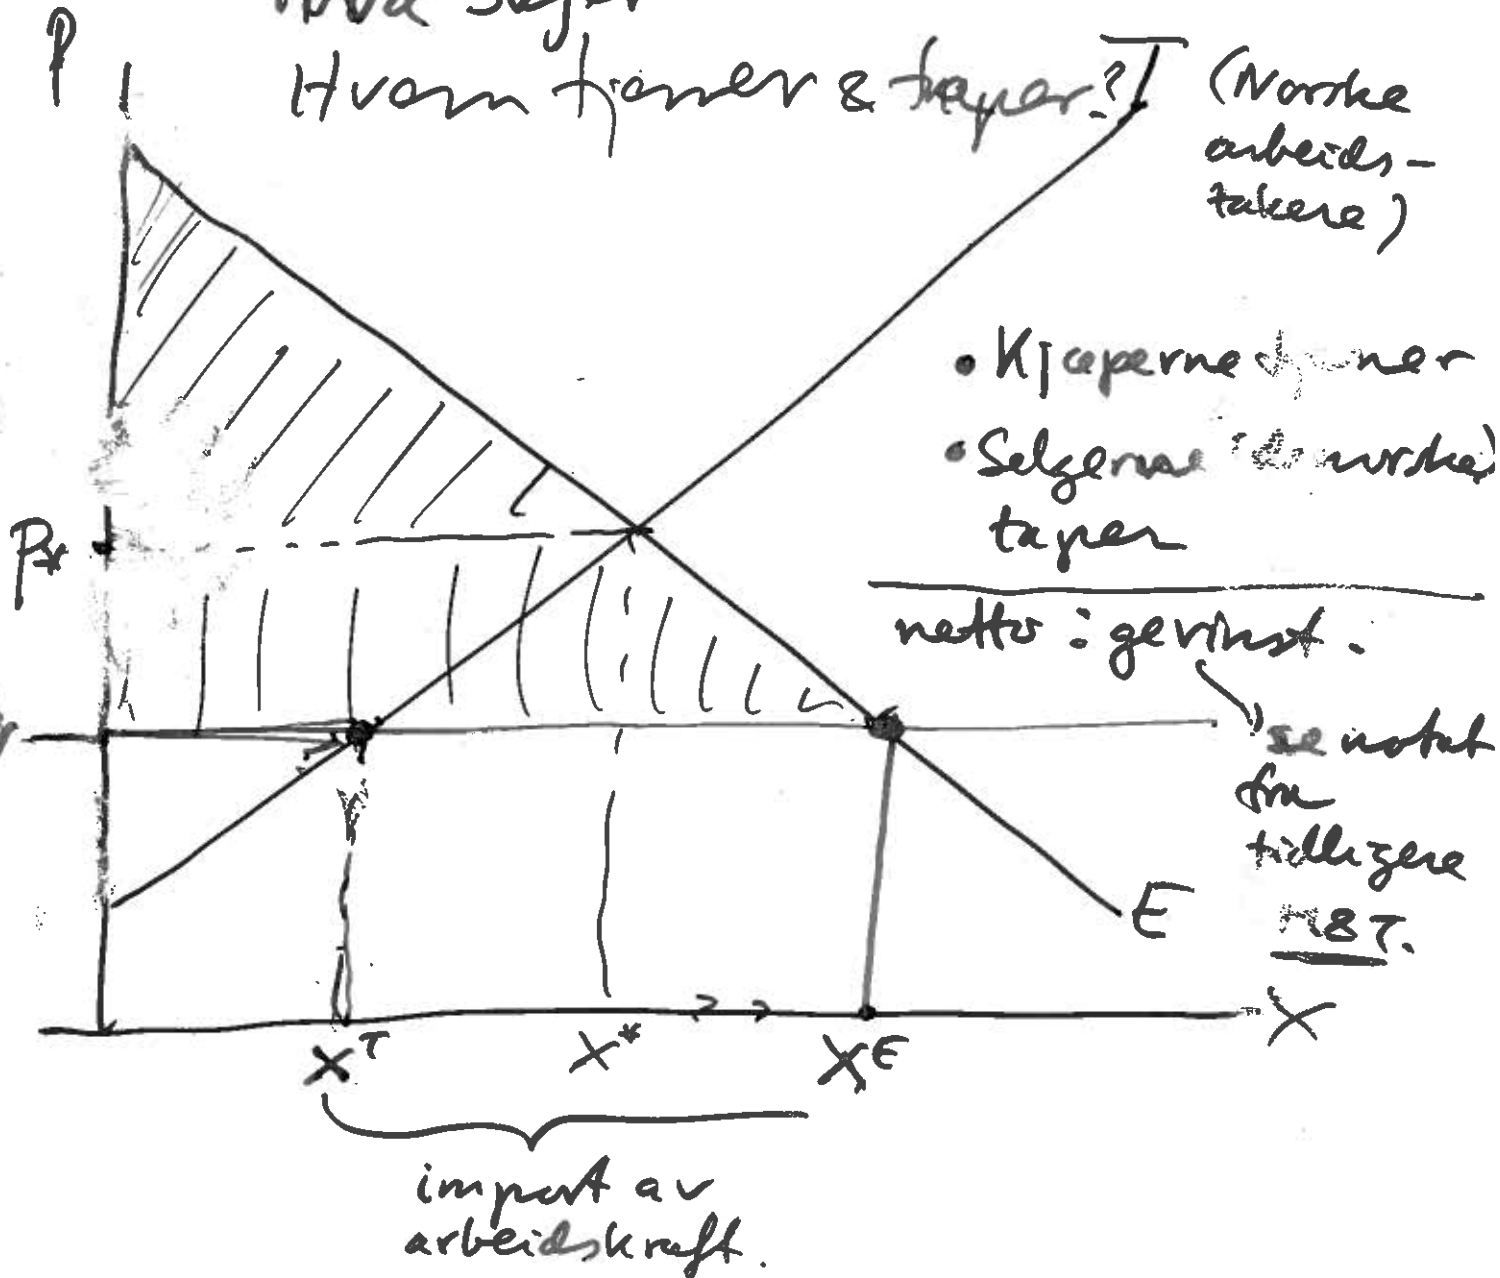 P
Hva skjer
Hvem tjener & taper?
T
(Norske
arbeids-
takere)
• Kjøperne tjener
• Selgerne (de norske)
taper
P*
netto : gevinst.
se notat
fra
tidligere
E
X
X^T
X*
X^E
import av
arbeidskraft.